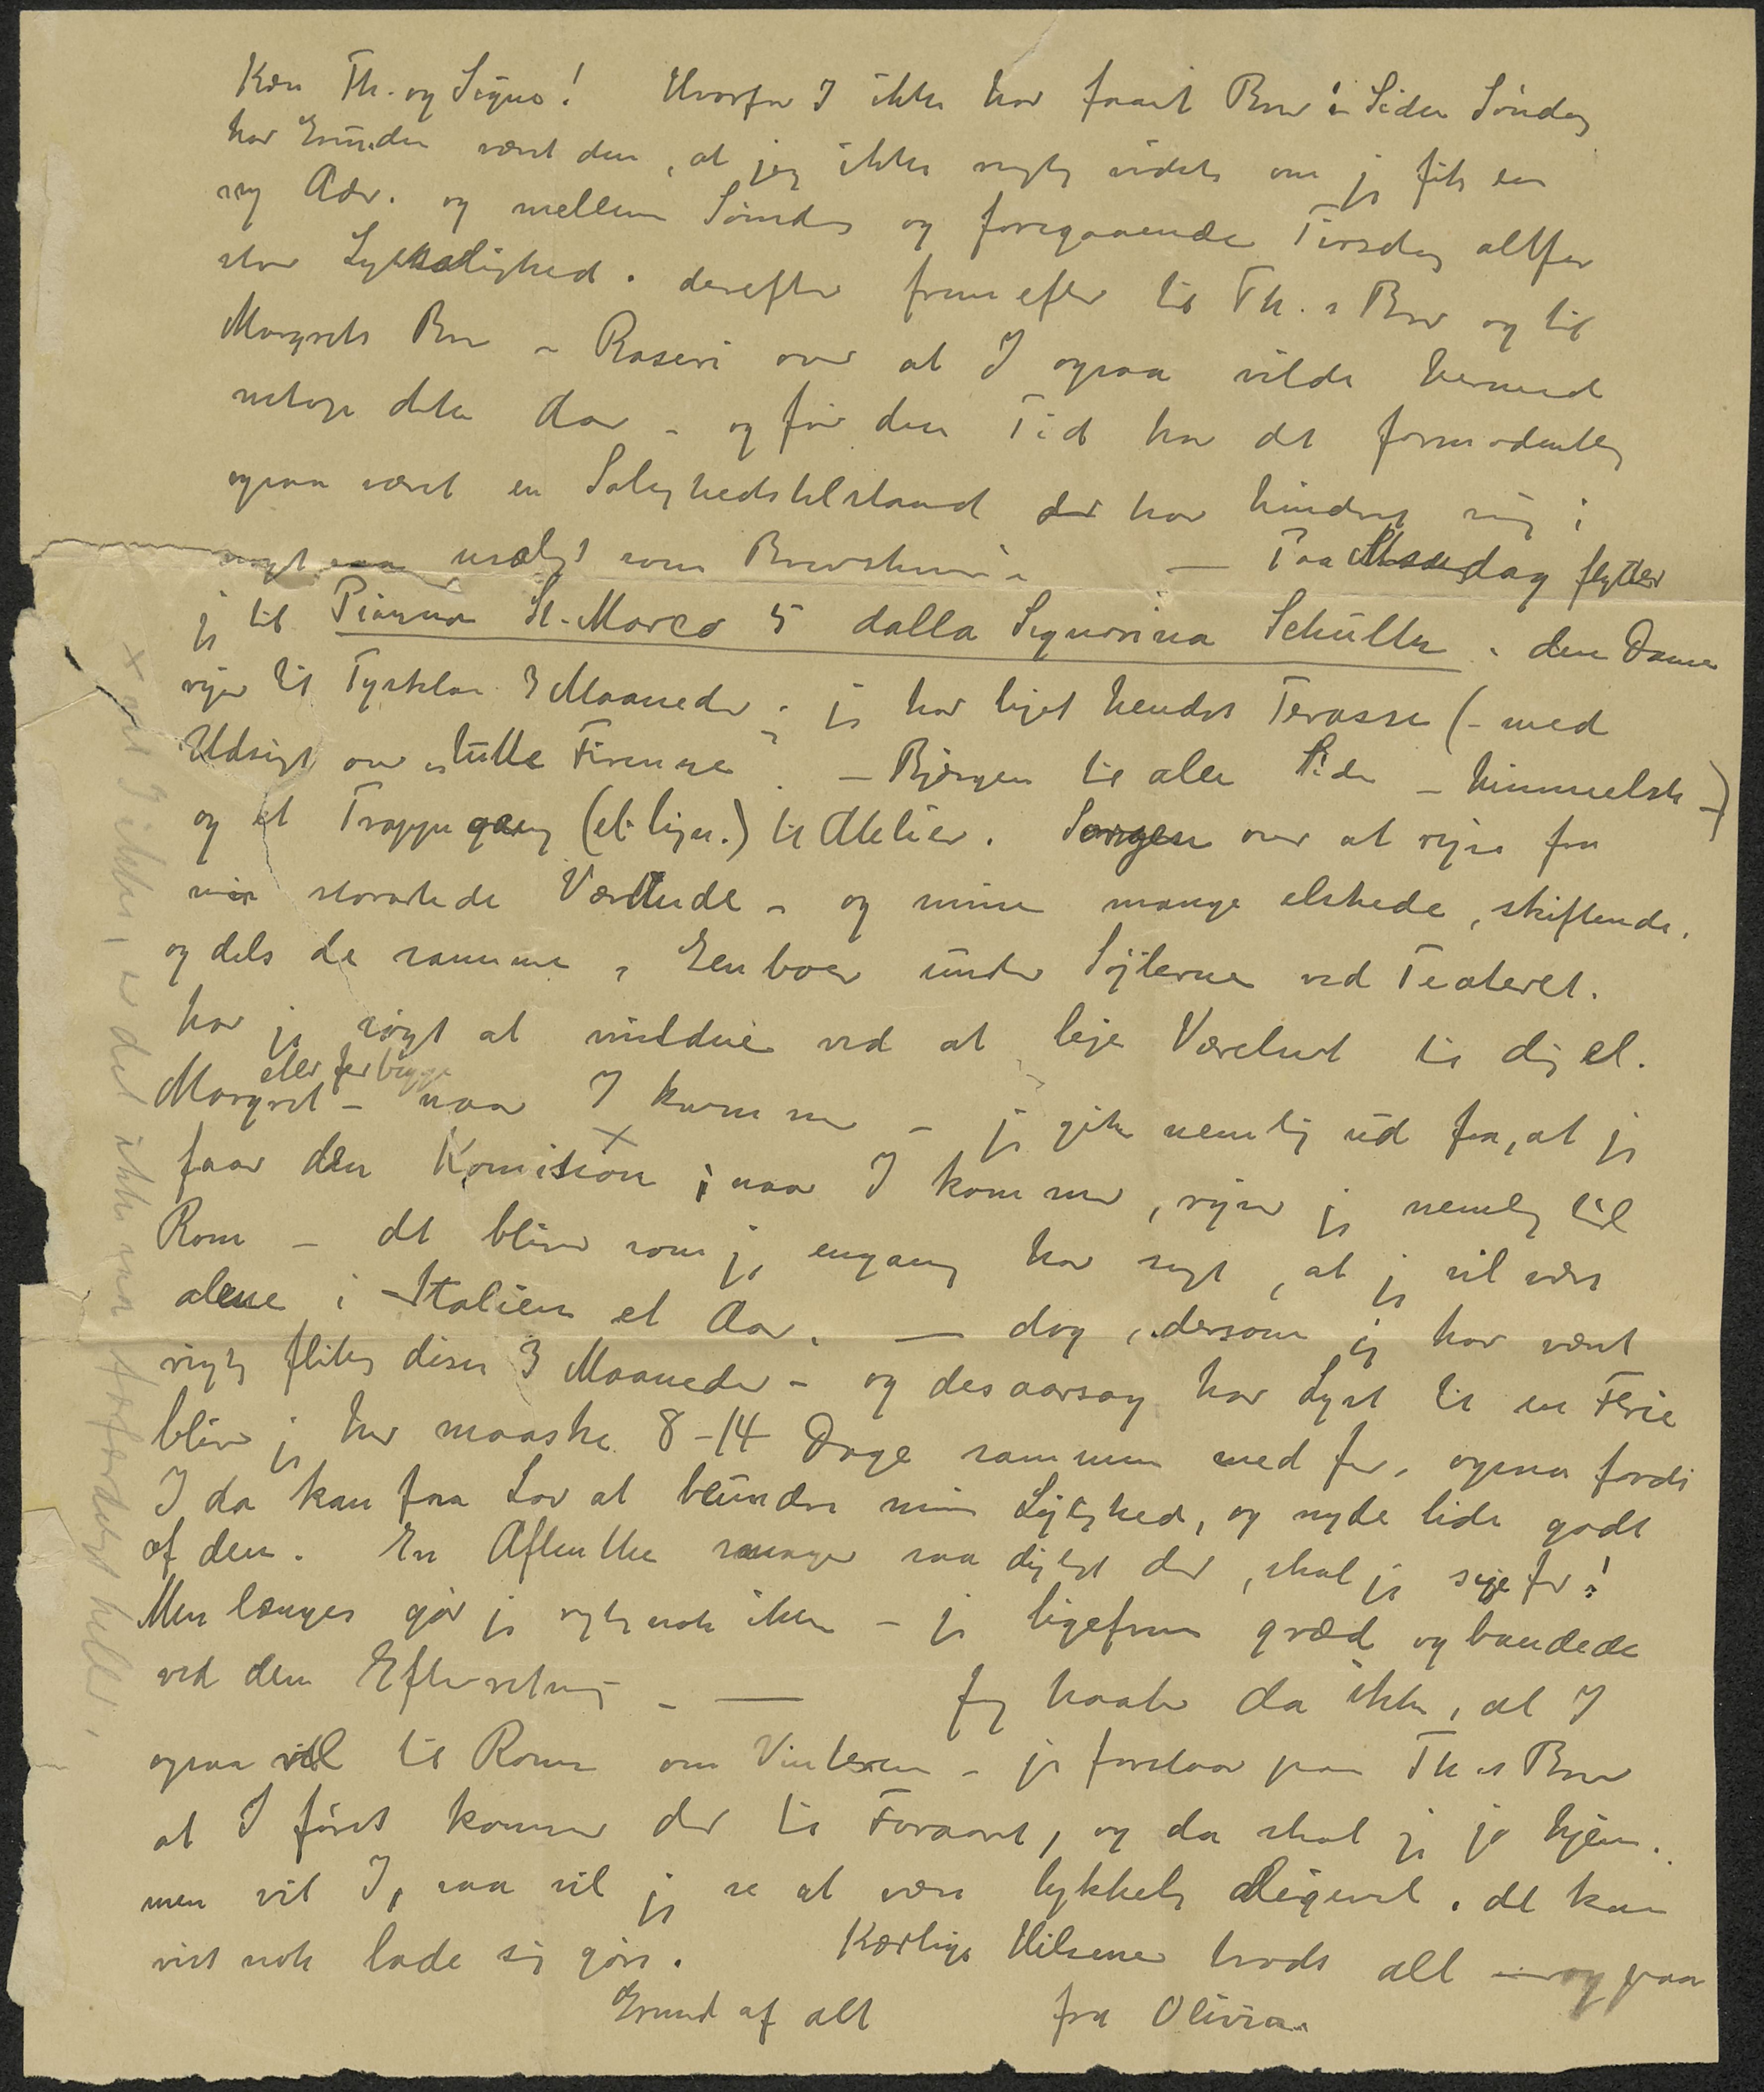 Kære Th. og Signe! Hvorfor I ikke har faaet Brev i Siden Søndag
har Grunden været den, at jeg ikke rigtig vidste om jg fik en
ny Adr. og mellem Søndag og foregaaende Tirsdag altfor
stor Lyksalighed. derefter frem efter til Th.s Brev og til
Margrets Brev - Raseri over at I ogsaa vilde herned
netop dette Aar - og før den Tid har det formodentlig
ogsaa været en Salighedstilstand der har hindret mig i
noget saa usaligt som Brevskriveri — Paa Mandag flytter
jg til Piazza St. Marco 5 dalla Signorina Schultz . den Dame
rejser til Tyskland 3 Maaneder . jg har lejet hendes Terasse (- med
Udsigt over „tutte Firenze" - Bjergene til alle Sider - himmelsk -)
og et Trappegang (el. lign.) til Atelier. Sorgen over at rejse fra
min storartede Værtinde - og mine mange elskede, skiftende.
og dels de samme, Genboer under Søjlerne ved Teateret.
har jg søgt at mildne ved at leje Værelset til dig el.
eller for begge
Margret - naar I kommer - jg gik nemlig ud fra, at jg
faar den Komision ; naar I kommer, rejser jg nemlig til
Rom - det bliver som jg engang har sagt, at jg vil være
alene i Italien et Aar. — dog, dersom jg har været
rigtig flittig disse 3 Maaneder - og desaarsag har Lyst til en Ferie
bliver jg her maaske 8-14 Dage sammen med jer, ogsaa fordi
I da kan faa Lov at beundre min Lejlighed, og nyde lidt godt
af den. En Aftenthe smager saa dejligt der, skal jg sige jer!
Men længes gør jg rigtignok ikke - jg ligefrem græd og bandede
ved den Efterretning - — Jeg haaber da ikke, at I
ogsaa vil til Rom om Vinteren - jg forstaar paa Th.s Brev
at I først kommer der til Foraaret, og da skal jg jo hjem.
men vil I, saa vil jg se at være lykkelig alligevel. det kan
vist nok lade sig gøre. Kærlige Hilsener trods alt - og paa
Grund af alt fra Olivia.
x vil I ikke, er det ikke saa forfærdeligt heller.